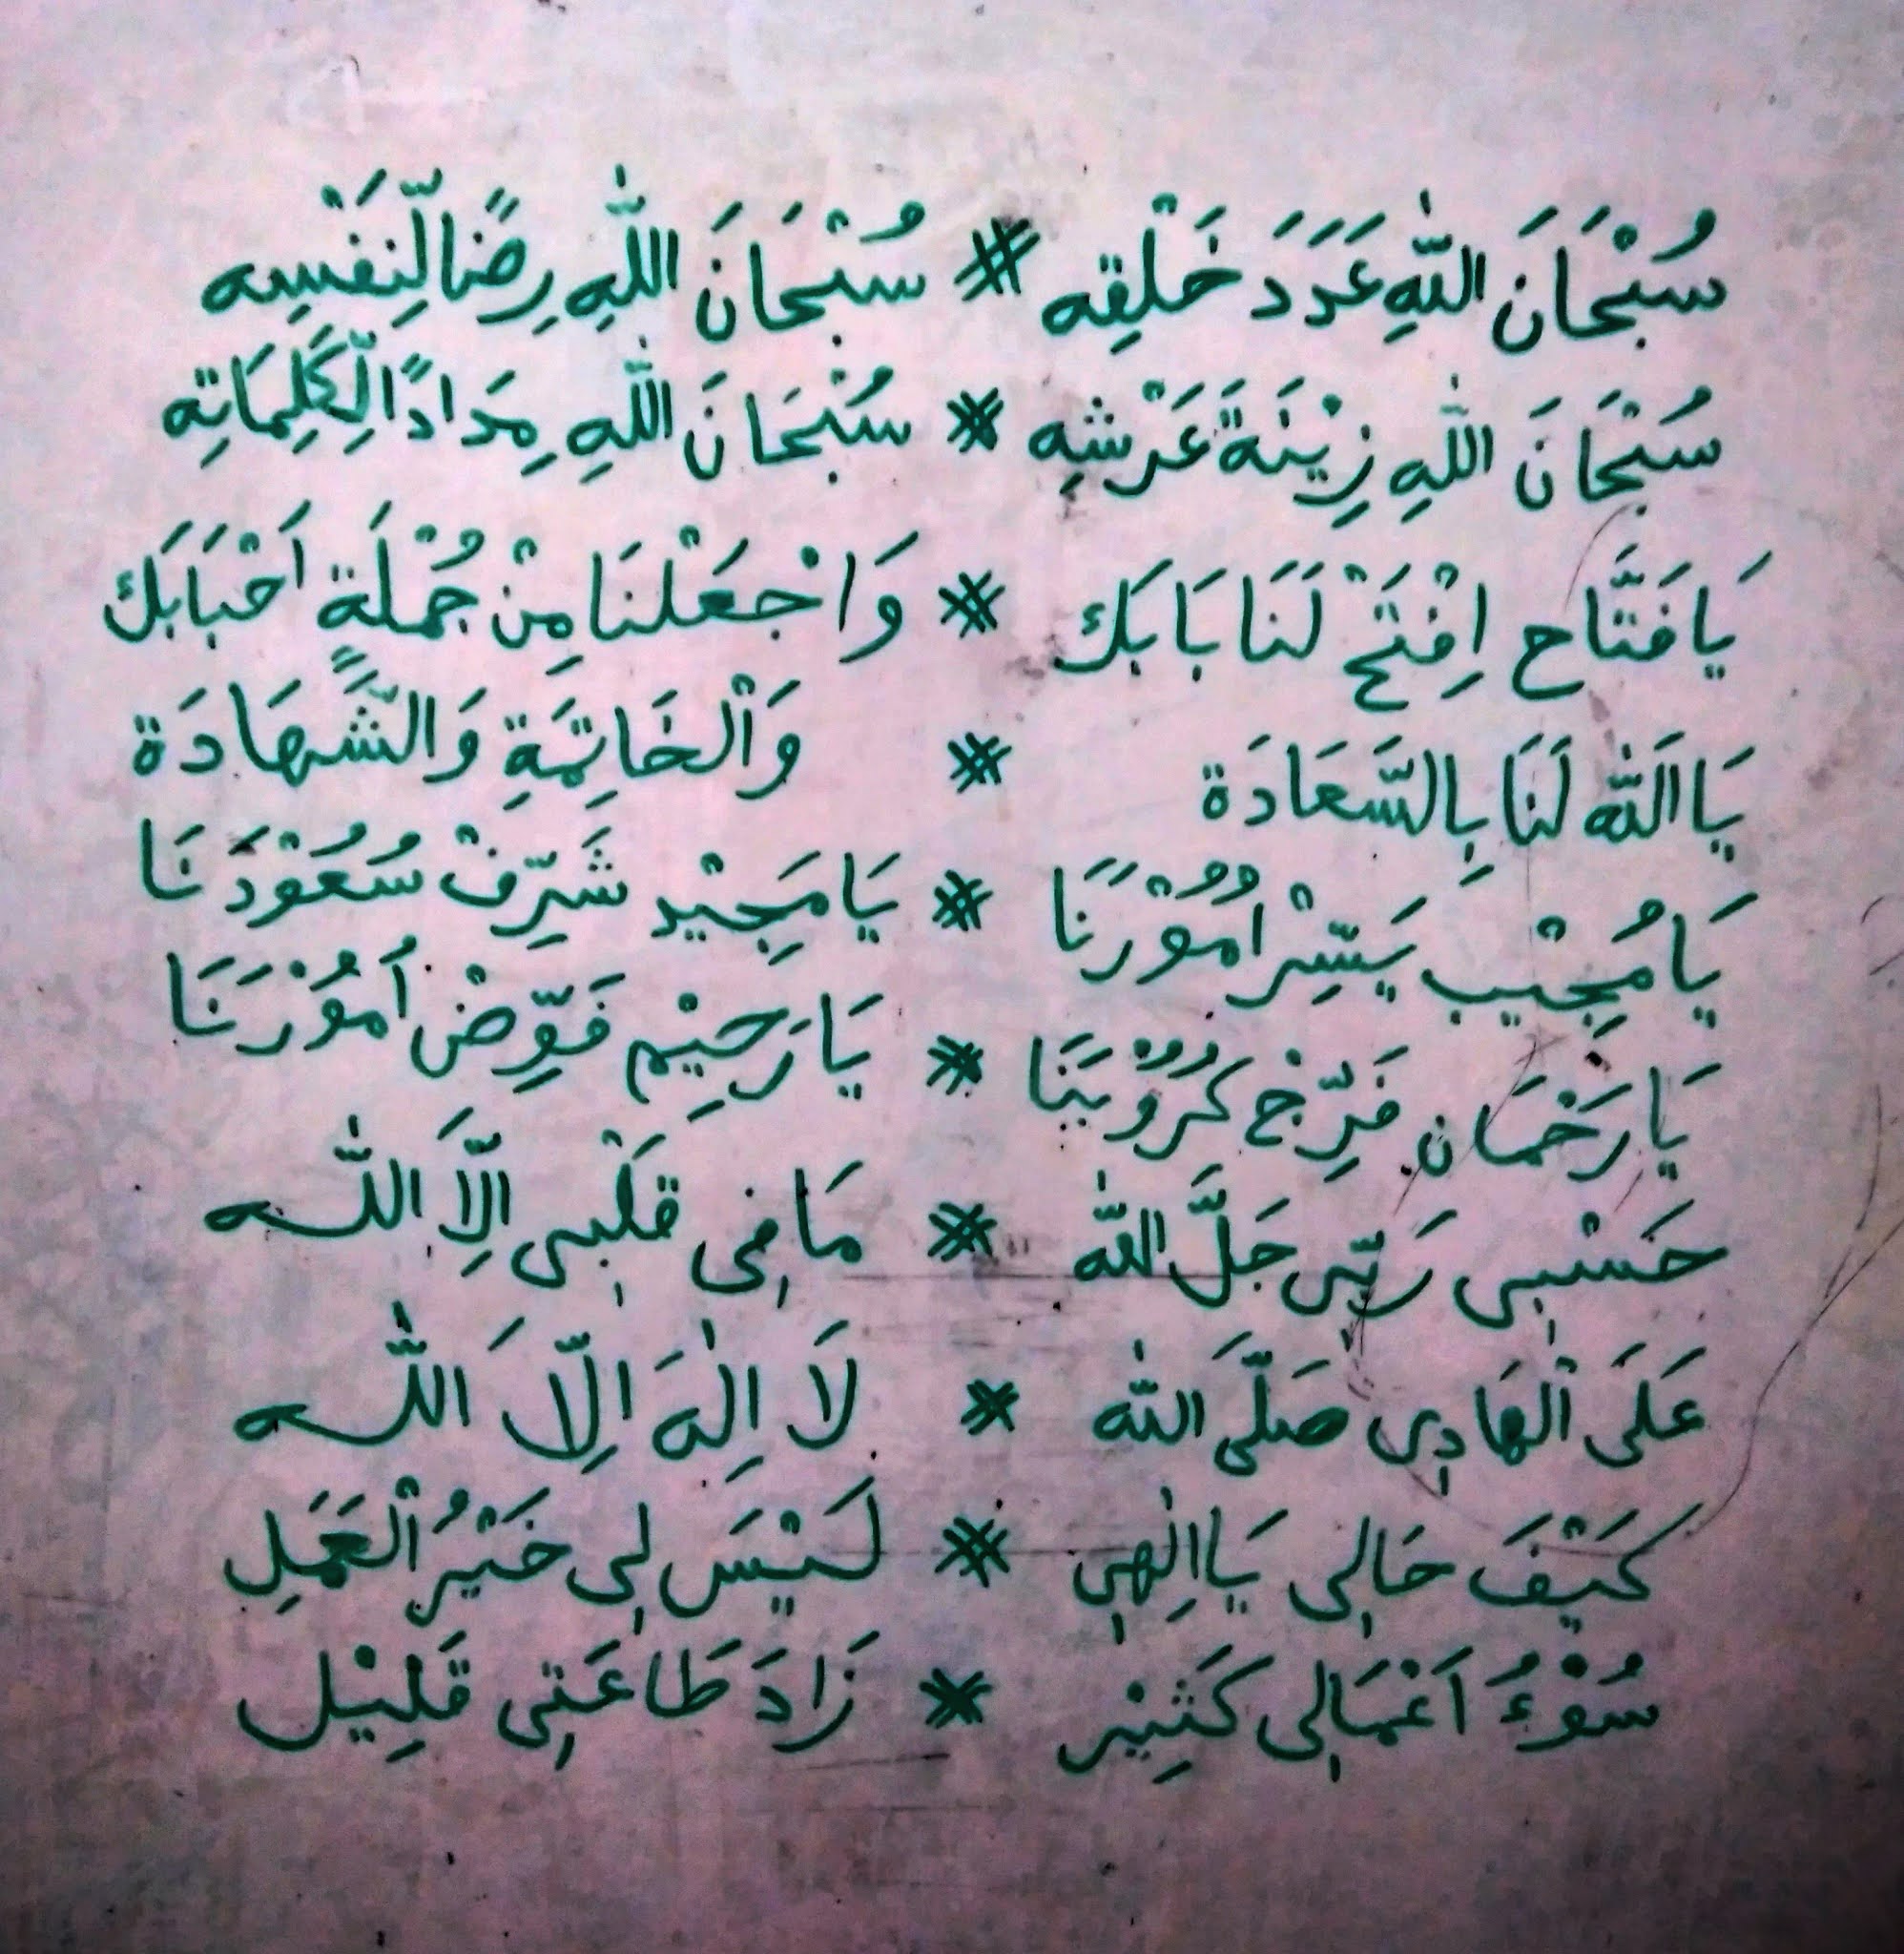 سُبْحَانَ اللّٰهِ عَدَدَ خَلْقِه # سُبْحَانَ اللّٰهِ رِضًا لِّنَفْسِه
سُبْحَانَ اللّٰهِ زِيْنَةَ عَرْشِه # سُبْحَانَ اللّٰهِ مِدَادًا لِّكَلِمَاتِه
يَا فَتَّاح اِفْتَحْ لَنَا بَابَك # وَاجْعَلْنَا مِنْ جُمْلَةٍ اَحْبَابَك
يَا اَللّٰه لَنَا بِالسَّعَادَة # وَالْخَاتِمَةِ وَالشَّهَادَة
يَا مُجِيْب يَسِّرْ اُمُوْرَنَا # يَا مَجِيْد شَرِّفْ سُعُوْدَنَا
يَا رَحْمَان فَرِّجْ كُرُوْبَنَا # يَا رَحِيْم فَوِّضْ اُمُوْرَنَا
حَسْبِى رَبِّى جَلَّ اللّٰه # مَا فِى قَلْبِى اِلَّا اللّٰه
عَلَى الْهَادِى صَلَّى اللّٰه # لَا اِلٰهَ اِلَّا اللّٰه
كَيْفَ حَالِى يَا اِلٰهِى # لَيْسَ لِى خَيْرُ الْعَمَلِ
سُوْءُ اَعْمَالِى كَثِيْر # زَادَ طَاعَتِى قَلِيْل